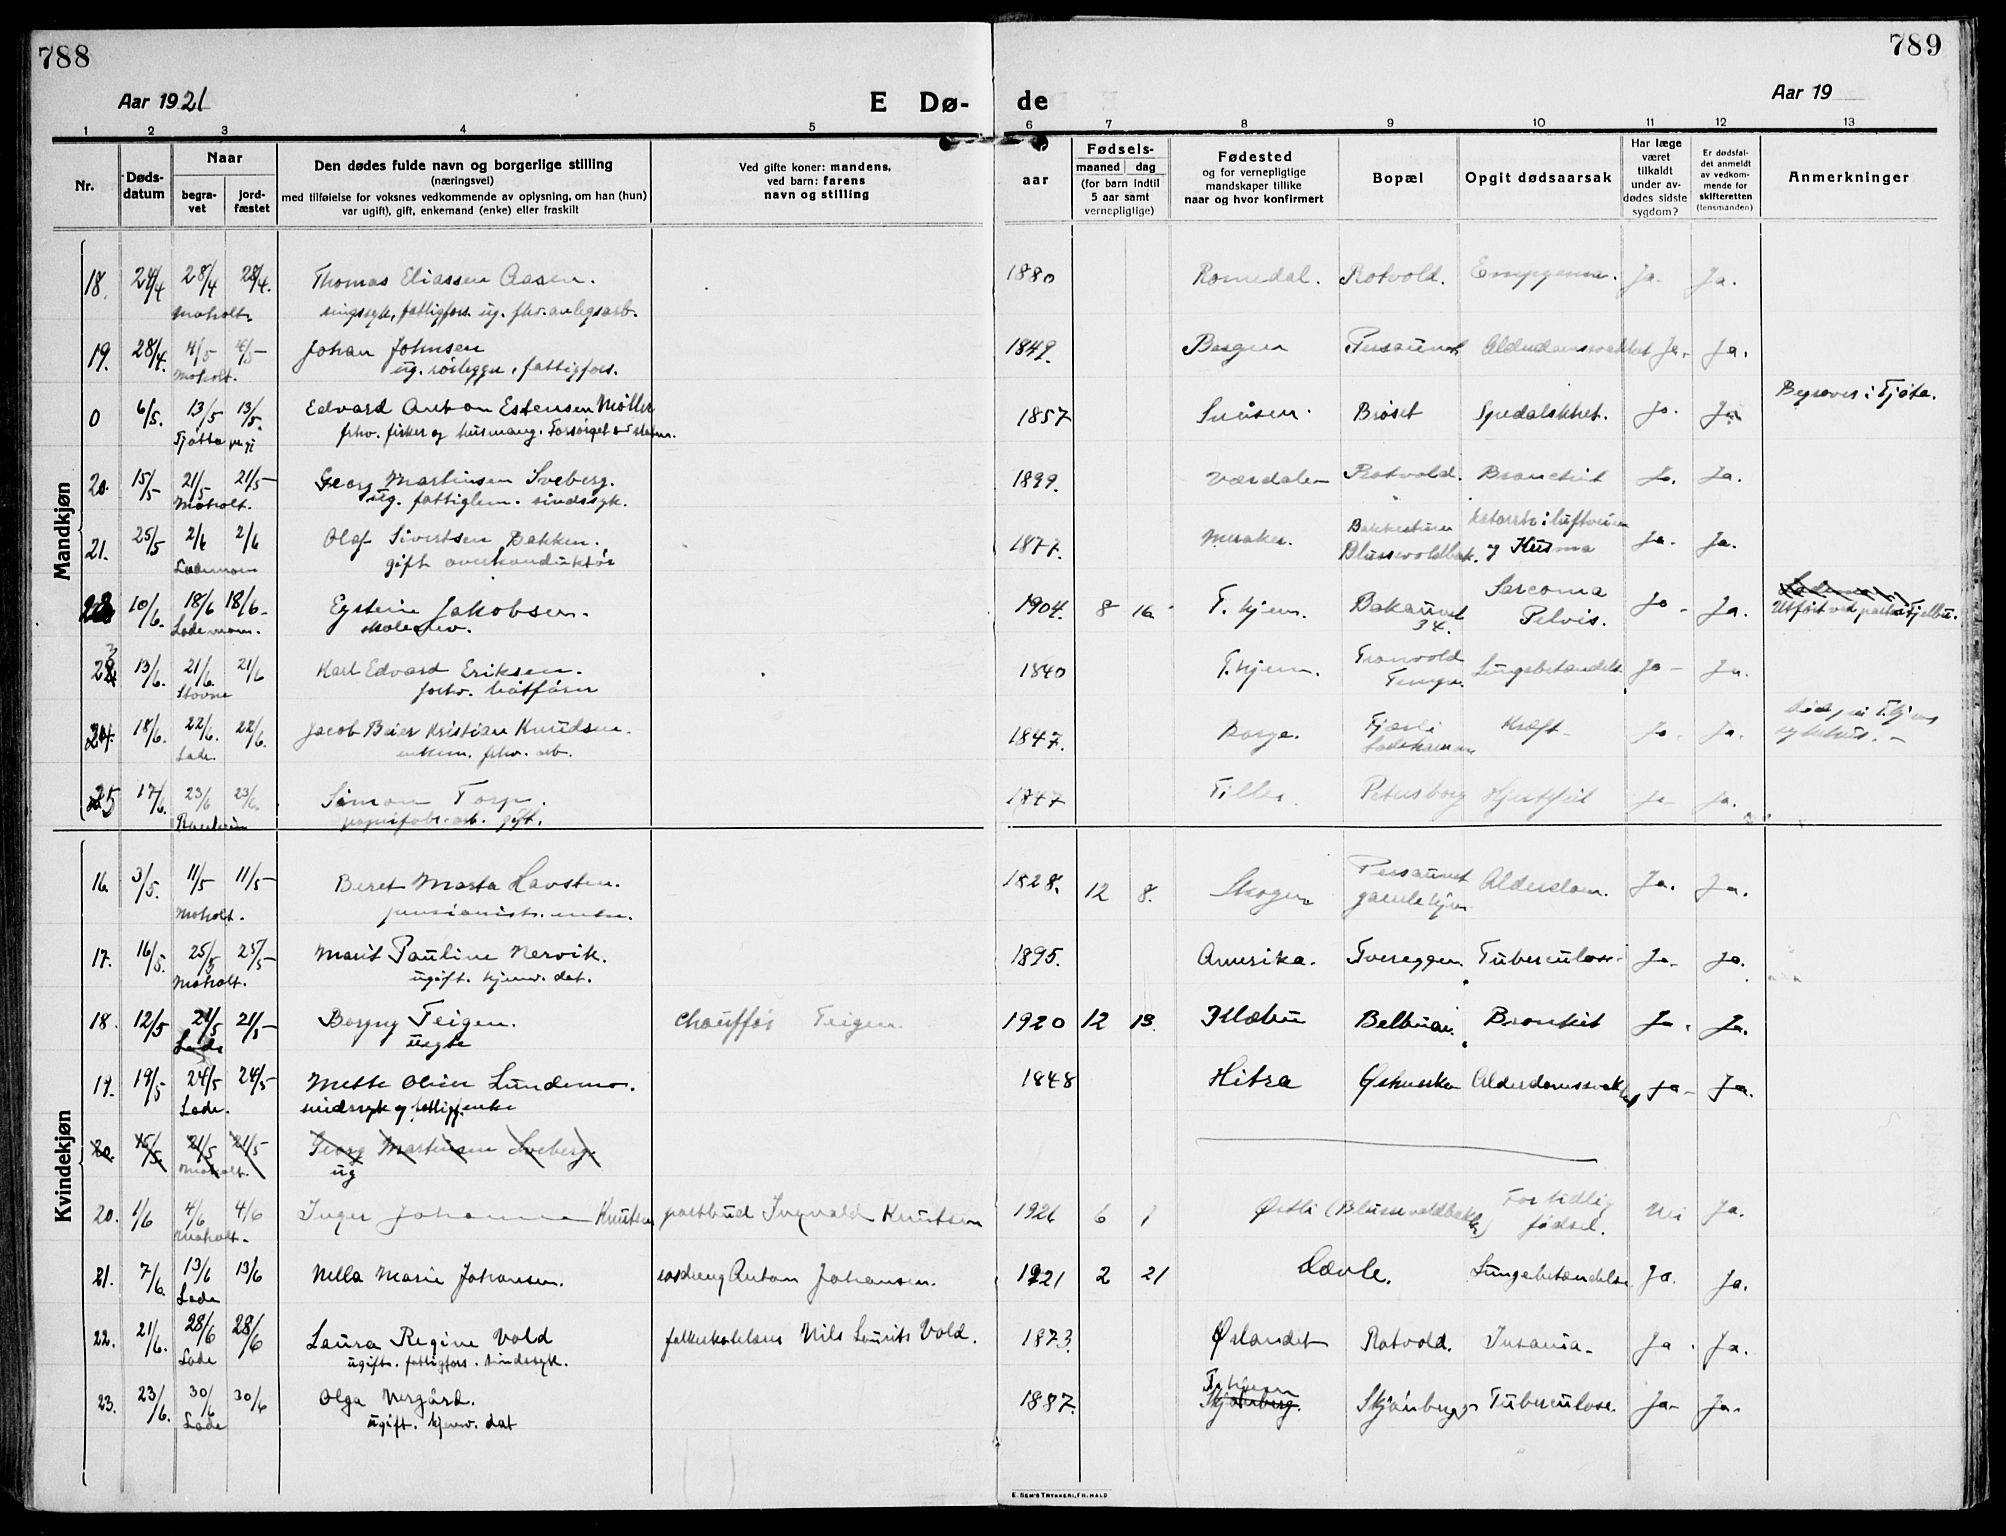 788
789
Aar 1921
E Dø-
de
Aar 19
1 2 3 4 5 6 7 8 9 10 11 12 13
Nr.
Døds-
datum
Naar
begra-
vet
jord-
fæstet
Den dødes fulde navn og borgerlige stilling
(næringsvei)
med tilføielse for voksnes vedkommende av oplysning, om han (hun)
var ugift), gift, enkemand (enke) eller fraskilt
Ved gifte koner: mandens,
ved barn: farens
navn og stilling
aar
Fødsels-
maaned dag
(for barn indtil
5 aar samt
vernepligtige)
Fødested
og for vernepligtige
mandskaper tillike
naar og hvor konfirmert
Bopæl
Opgit dødsaarsak
Har læge
været
tilkaldt
under av-
dødes sidste
sygdom?
Er dødsfal-
det anmeldt
av vedkom-
mende for
skifteretten
(lensmanden)
Anmerkninger
Mandkjøn
18. 24/4 28/4 28/4. Thomas Eliassen Aasen. 1880 Romedal. Rotvold. Empyema. Ja. Ja.
Moholt. sindssyk, fattigfors. ug. fhv. anlegsarb.
19. 28/4. 4/5 4/5 Johan Johnsen 1849. Bergen Persaunet Alderdomssvakhet Ja. Ja.
Moholt. ug. rørlegger, fattigfors.
0 6/5. 13/5 13/5. Edvard Anton Estensen Møller 1857 Snåsen. Brøset Spedalskhet. Ja. Ja. Begraves i Tjøtta.
Tjøtta fhv. fisker og husmang. Forsørget av staten.
20. 15/5 21/5 21/5 Georg Martinsen Sveberg. 1899. Værdalen Rotvold. Bronchit Ja. Ja.
Moholt. ug. fattiglem. sindssyk.
21. 25/5 2/6 2/6 Olaf Sivertsen Bakken. 1877. Meraker. Blussuvoldbak. Katarrh i luftveiene Ja. Ja.
Lademoen gift overkonduktør
10/6. 18/6 18/6 Eystein Jakobsen. 1904. 8 16 T.hjem. Bakaunet Sarcoma Ja Ja.
Lademoen. skoleelev. 34. Pelvis. Utført ved pastor Fjelbu.
23 13/6. 21/6 21/6 Karl Edvard Eriksen. 1840 T.hjem. Tronvold Lungebetændelse Ja Ja.
Stavne forhv. båtfører Tempe.
24. 18/6. 22/6. 22/6. Jacob Beier Kristian Knudsen. 1847. Borge. Fjærli Kræft Ja. Ja. død på T.hjems
Lade. enkem. fhv. arb. Ladehammeren sykehus.
25 17/6. 23/6 23/6. Simon Torp. 1847 Tiller. Petersborg Hjertfeil Ja Ja.
papirfabr. arb. gift.
Kvindekjøn
16. 3/5. 11/5 11/5 Beret Marta Havsten. 1828. 12 8. Skogn Persaunet Alderdom. Ja. Ja.
Moholt. pensionist. enke. gamlehjem
17. 16/5. 25/5 25/5 Marit Pauline Nervik. 1895. Amerika. Tvereggen Tuberculose Ja. Ja.
Moholt. ugift. hjemv. dat.
18. 12/5 21/5 21/5 Borgny Teigen. Chauffør Teigen 1920 12 13. Klæbu Belbuan. Bronkit Ja. Ja.
Lade uegte
19. 19/5 24/5 24/5 Mette Oline Lundemo. 1848 Hitra Alderdomssvakhet Ja Ja.
Lade. sindssyk og fattigenke
20. 15/5. 21/5 21/5 Georg Martinsen Sveberg.
Moholt. ug
20. 1/6 4/6 4/6 Inger Johanne Knutsen postbud Ingvald Knutsen 1921 6 1 Østli (Blussuvoldbakk.) For tidlig Nei Ja.
Moholt. fødsel.
21. 7/6. 13/6 13/6 Nella Marie Johansen. Anton Johansen. 1921 2 21 Lungebetændelse Ja. Ja.
Lade
22. 21/6. 28/6 28/6 Laura Regine Vold Nils Lourits Vold. 1873. Ørlandet Rotvold. Insania. Ja. Ja.
Lade ugift. fattigfors. sindssyk.
23. 23/6. 30/6 30/6 Olga Nergård. 1887. T.hjem Skjønberg. Skjønberg Tuberculose. Ja. Ja.
Lade ugift. hjemv. dat
E. SEM'S TRYKKERI, FR.HALD